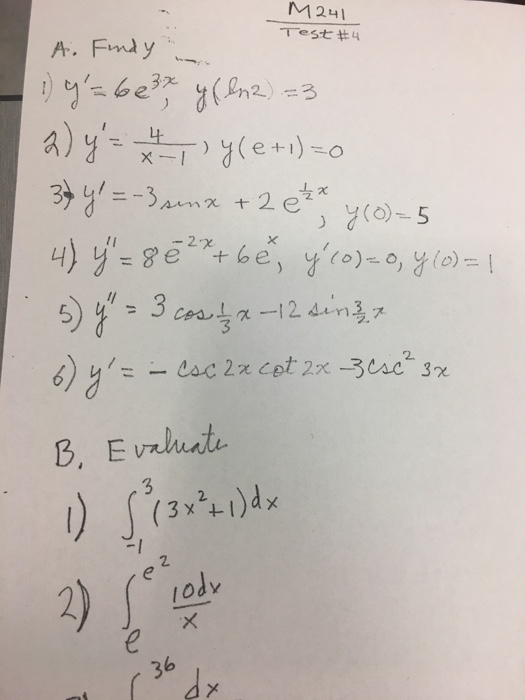 M241
Test #4
A. Find y
1) y' = 6e^{3x}, y(ln2) = 3
2) y' = 4/(x-1), y(e+1) = 0
3) y' = -3 sin x + 2e^{1/2 x}, y(0) = 5
4) y'' = 8e^{-2x} + 6e^{x}, y'(0) = 0, y(0) = 1
5) y'' = 3 cos 1/3 x - 12 sin 3/2 x
6) y' = - csc 2x cot 2x - 3csc² 3x
B. Evaluate
1) ∫_{-1}^{3} (3x²+1)dx
2) ∫_{e}^{e²} 10dx/x
∫^{36} dx